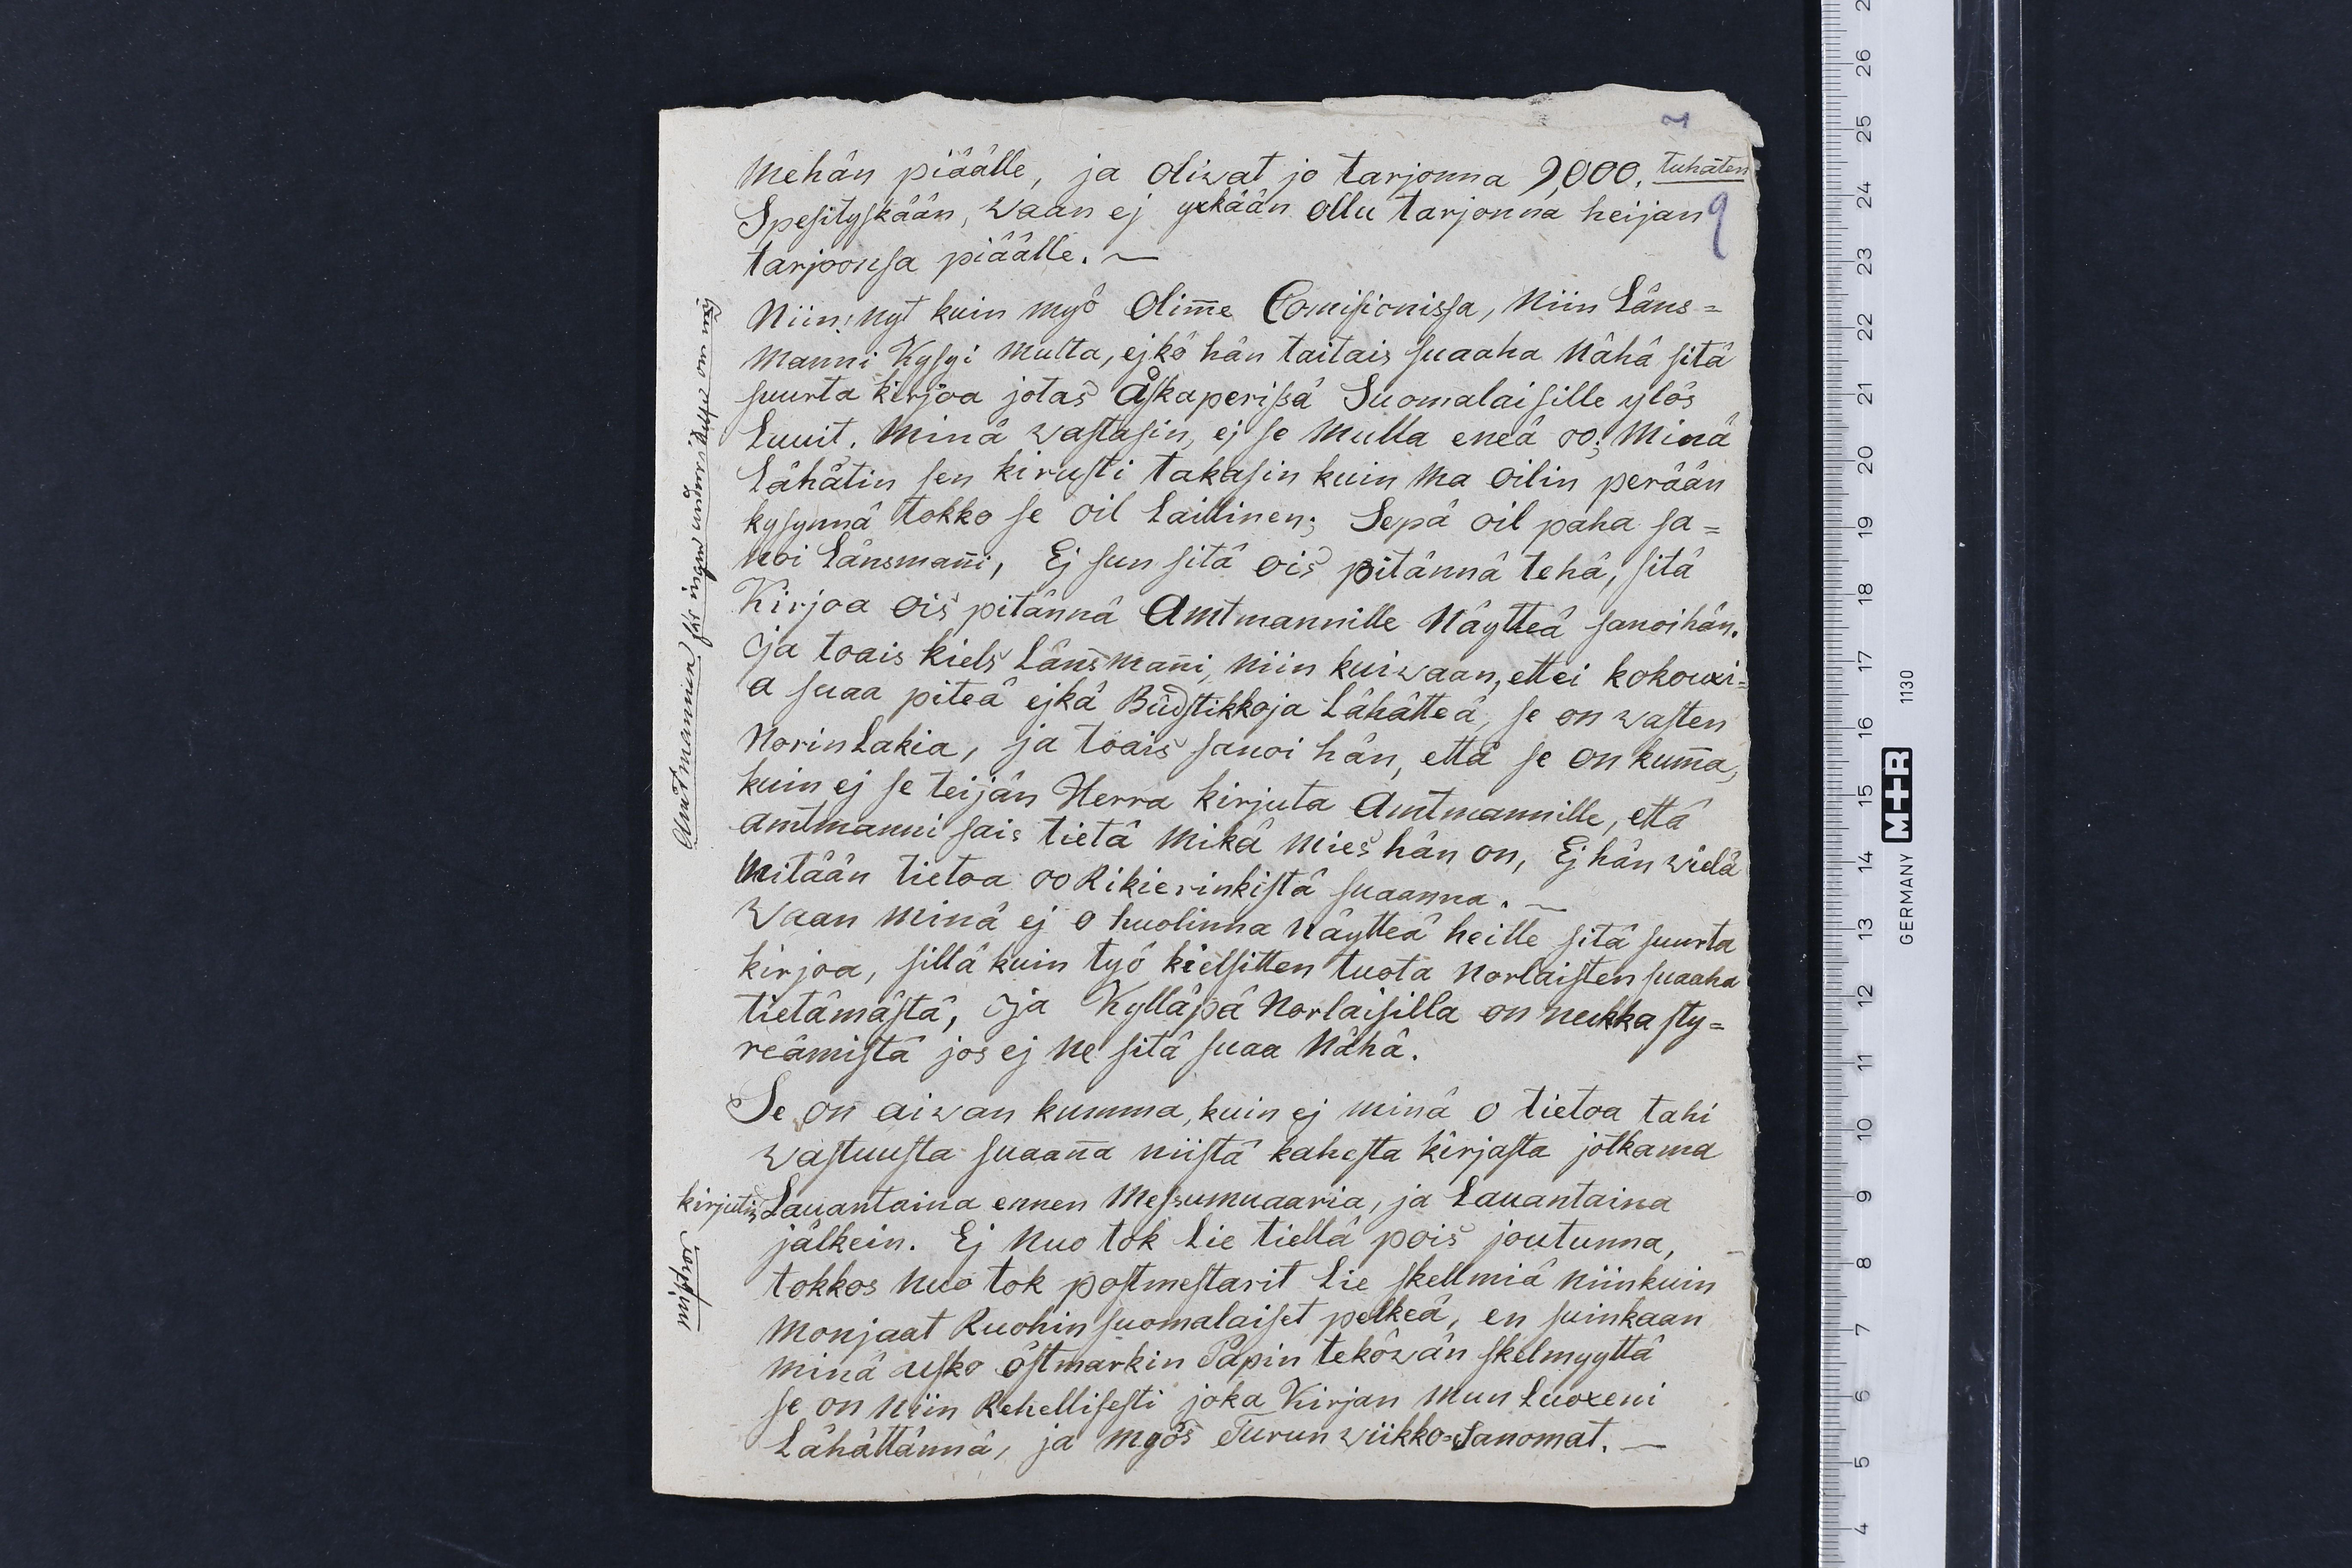 7
mehän piäälle, ja oliwat jo tarjonna 9,000. tuhaten
Spesityskään, waan ej yxkään ollu tarjonna heijan
9
tarjoonsa piäälle. —
Niin! nyt kuin myö olim̄e Comisionissa, niin Läns=
manni Kysyi multa, ejkö hän taitais suaaha nähä sitä
suurta kirjoa jotas Åskaperissä Suomalaisille ylös
luuit. Minä wastasin, ej se mulla eneä oo; Minä
lähätin sen kirusti takasin kuin ma oilin perään
kysynnä tokko se oil laillinen; Sepä oil paha sa=
noi länsman̄i, Ej sun sitä ois pitännä tehä, sitä
Kirjoa ois pitännä Amtmannille näytteä sanoi hän.
Ja toais kiels länsman̄i, niin kuiwaan, ettei kokouxi=
a suaa piteä ejkä Büdstikkoja lähätteä, se on wasten
Norin lakia, ja toais sanoi hän, että se on kum̄a,
kuin ej se teijän Herra kirjuta Amtmannille, että
amtmanni sais tietä mikä mies hän on, Ej hän wielä
mitään tietoa oo Rikierinkistä suaanna. —
Waan minä ej o huolinna näytteä heille sitä suurta
kirjoa, sillä kuin työ kielsitten tuota norlaisten suaaha
tietämästä, Ja Kylläpä Norlaisilla on neukka sty=
reämistä jos ej ne sitä suaa nähä.
Se on aiwan kumma, kuin ej minä o tietoa tahi
wastuusta suaan̄a niistä kahesta kirjasta jotka ma
kirjutin Lauantaina ennen Messumuaaria, ja Lauantaina
jälkein. Ej nuo tok lie tiellä pois joutunna,
tokkos nuo tok postmestarit lie skellmiä niinkuin
monjaat Ruohin suomalaiset pelkeä, en suinkaan
minä usko östmarkin Papin teköwän skelmyyttä
se on niin Rehellisesti joka Kirjan mun luoxeni
lähättännä, ja myös Turun wiikko=Sanomat. —
Amtmannia
GERMANY 1130
M+R
26
25
24
23
22
21
20
19
18
17
16
15
14
13
12
11
10
9
8
7
6
5
4